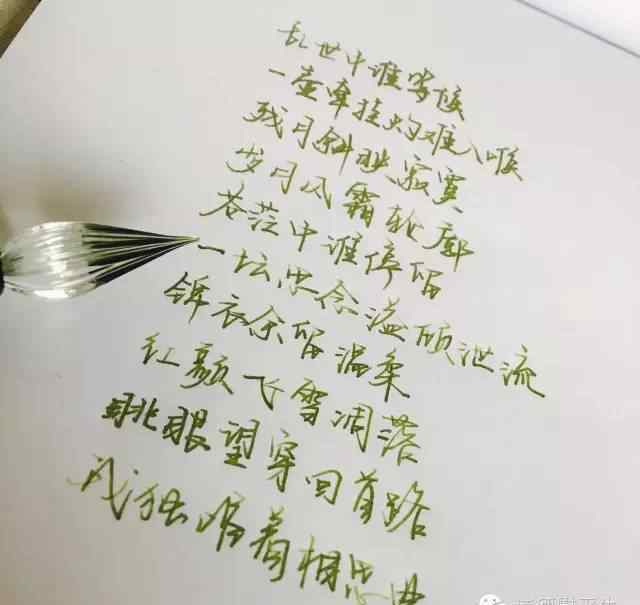 乱世中谁等候
一壶牵挂灼难入喉
残月斜映寂寞
岁月风霜轮廓
苍茫中谁停留
一坛思念溢倾泄流
锦衣余留温柔
红颜飞雪凋落
眺眼望穿回首路
我独唱着相思